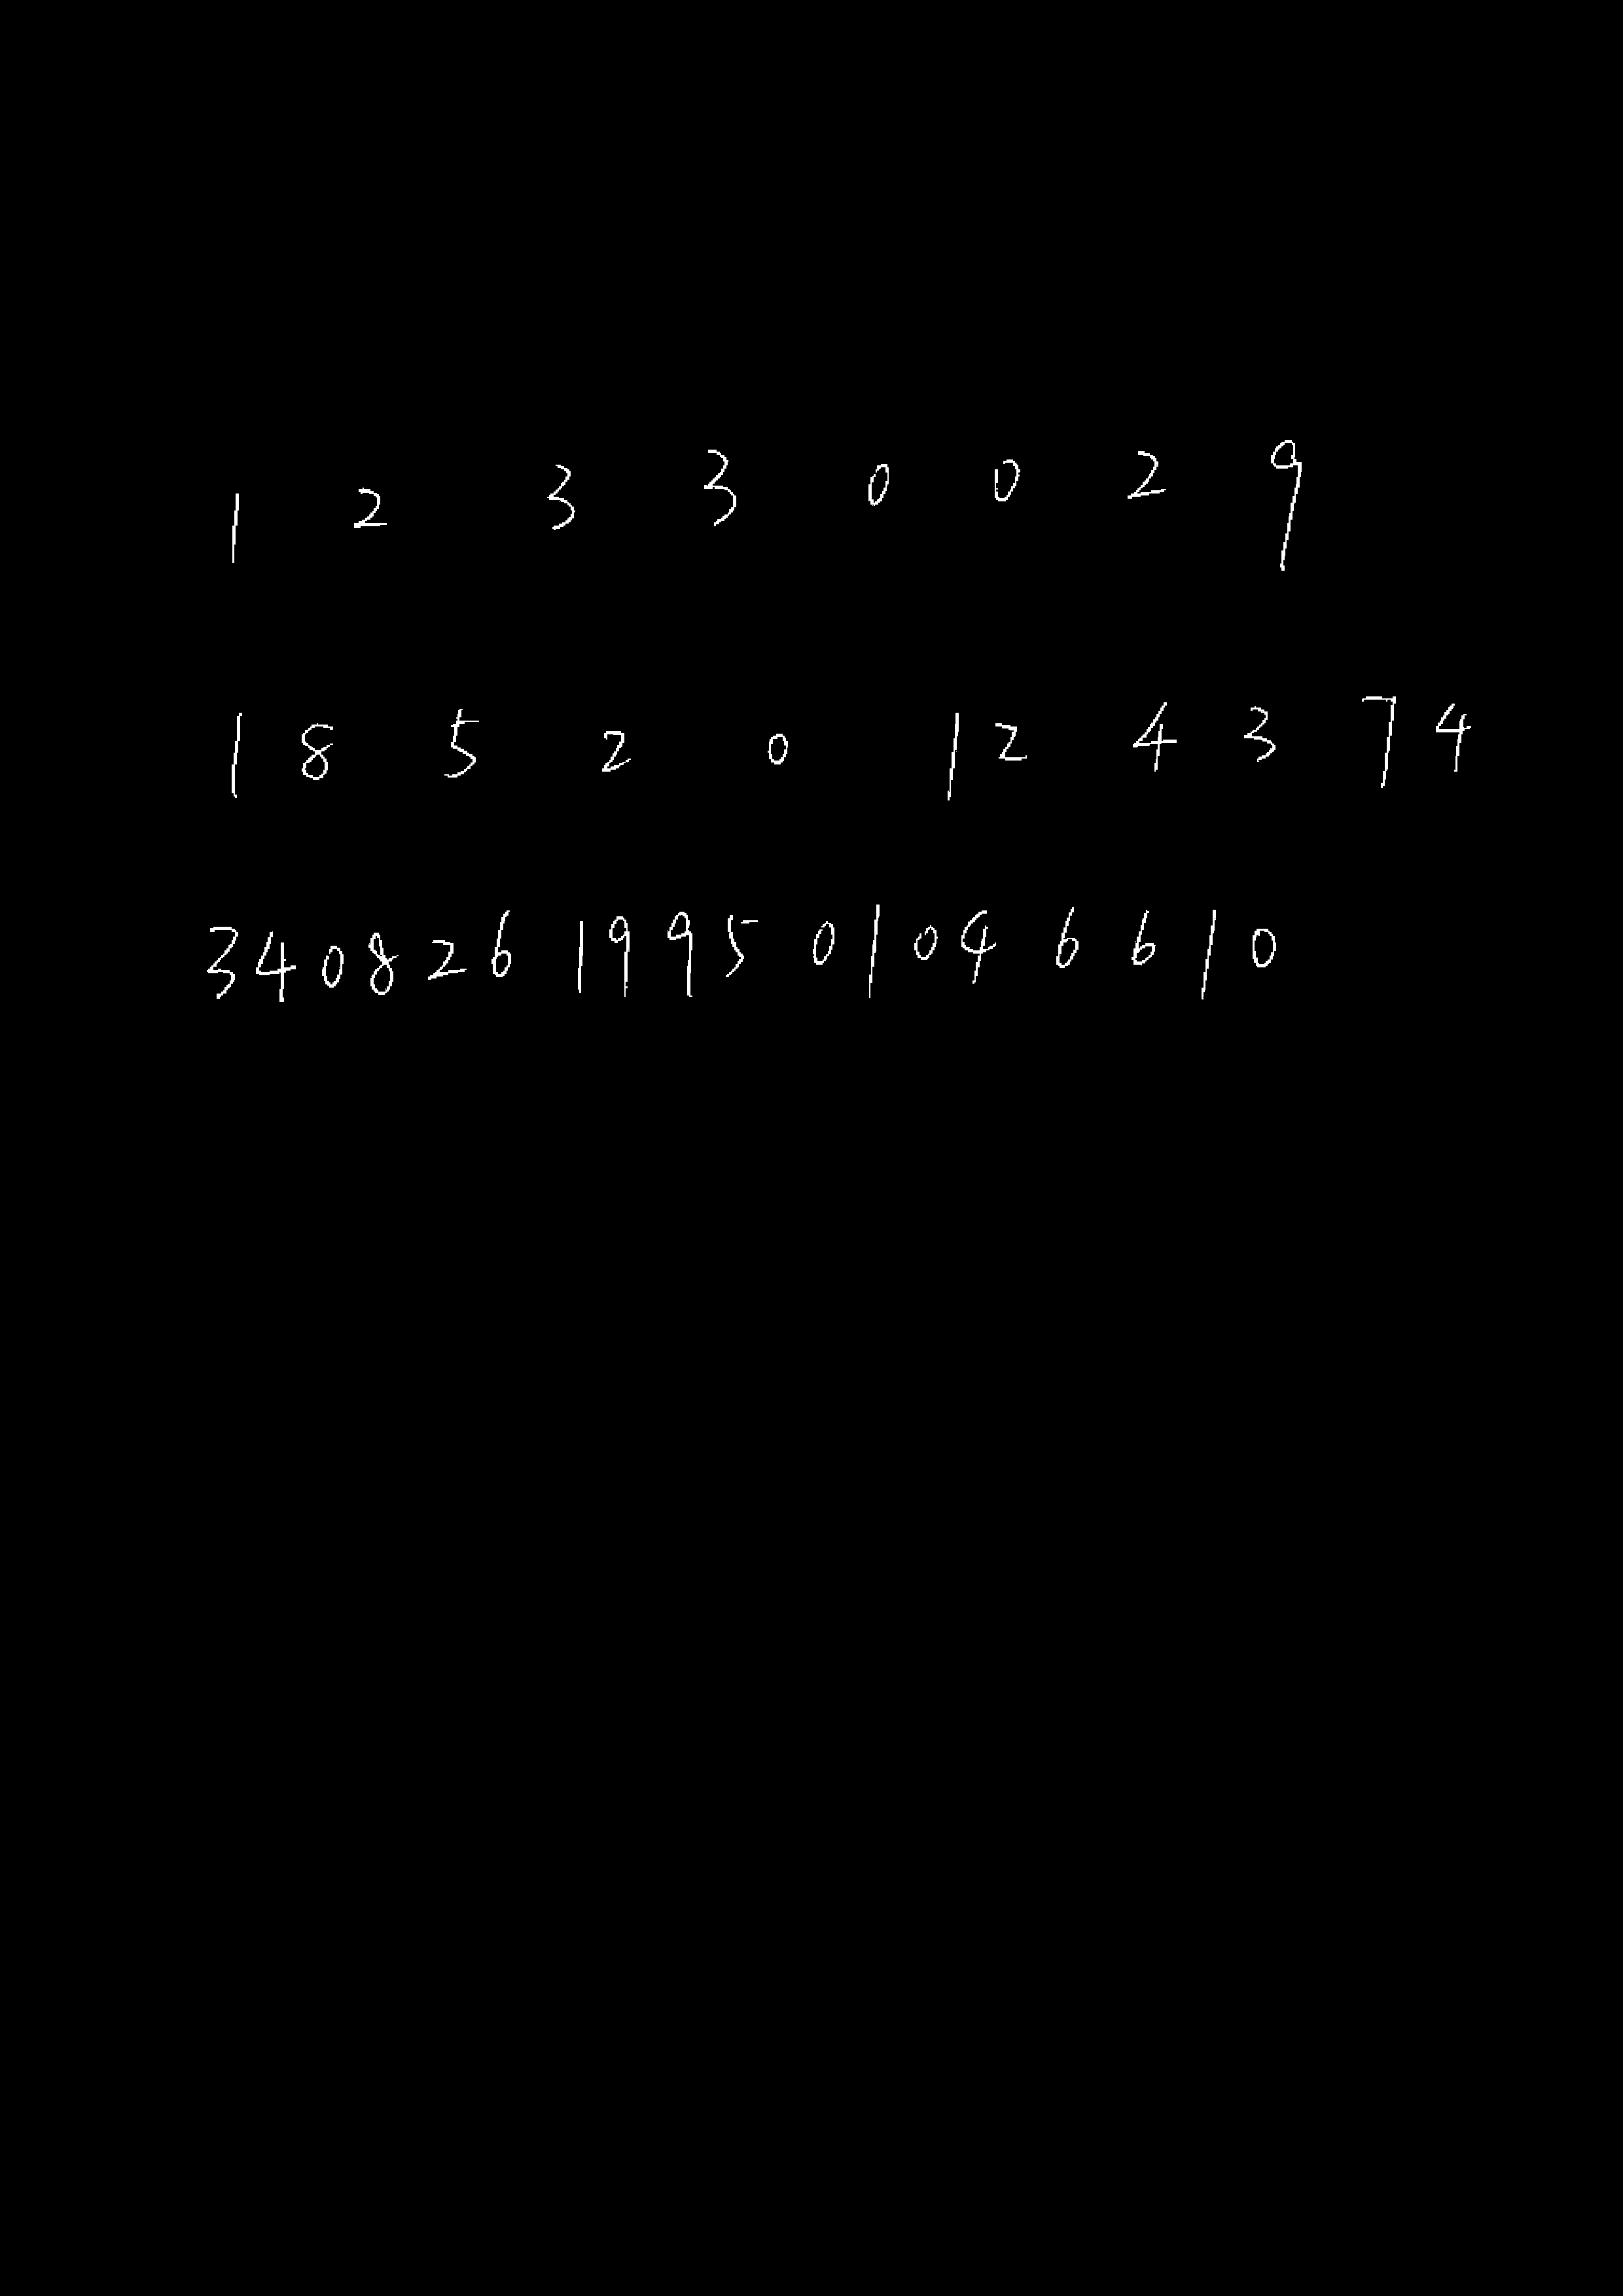 1 2 3 3 0 0 2 9
1 8 5 2 0 1 2 4 3 7 4
3 4 0 8 2 6 1 9 9 5 0 1 0 4 6 6 1 0